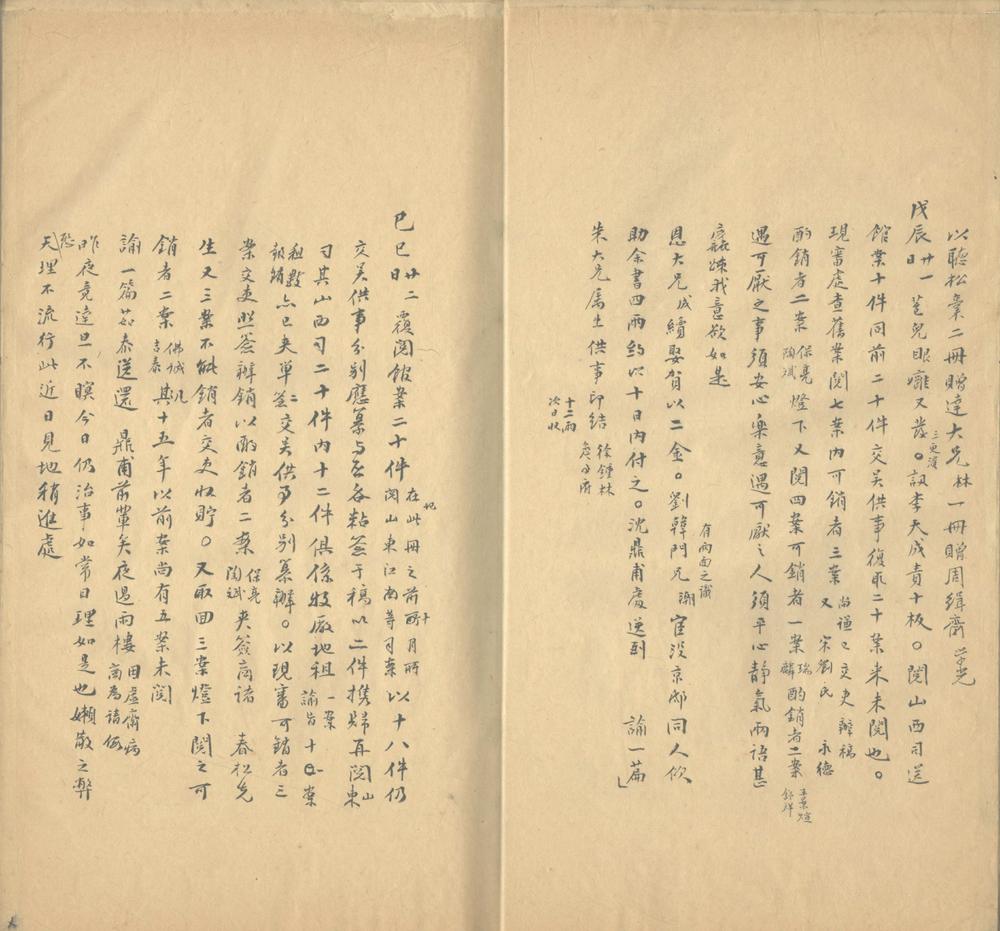 以聽松彙二冊贈達大兄林一冊贈周緝齋學光
戊辰廿一日芝兒眼癰又發。三更後訊李天成責十板。閱山西司送
館業十件同前二十件交吳供事復取二十案来未閱也。
現審處查舊業閱七案內可銷者三案尚謙又宋劉氏已交吏辦稿永德
酌銷者二案保亮陶斌燈下又閱四案可銷者一案瑞麟酌銷者二案
遇可厭之事須安心樂意遇可厭之人須平心靜氣兩語甚
疏我意欲如是
有兩面之識
恩大兄成續娶賀以二金。劉韓門兄潮宦没京邸同人僉
助余書四兩約以十日內付之。沈鼎甫處送到諭一篇
朱大兄為生供事印結徐鍾林
十二兩次日收
己巳廿二日覆閱館案二十件在此冊之前所閱山東江南等司案以十八件仍
交吳供事分別應纂与否各粘簽于稿以二件携歸再閱山東
司其山西司二十件內十二件俱係牧廠地租一案諭旨十案
租數報銷点已夾單簽交吳供事分別纂辦。以現審可銷者三
案交吏照簽辦銷以酌銷者二案保亮陶斌夾簽商諸春松先
生又三案不能銷者交吏收貯。又取回三案燈下閱之可
銷者二案佛誠吉泰其十五年以前案尚有五案未閱
諭一篇茹泰送還鼎甫前輩矣夜過雨樓田虛齋病
昨夜竟達旦不瞑今日仍治事如常日理如是也嬾散之弊
恐天理不流行此近日見地稍進處